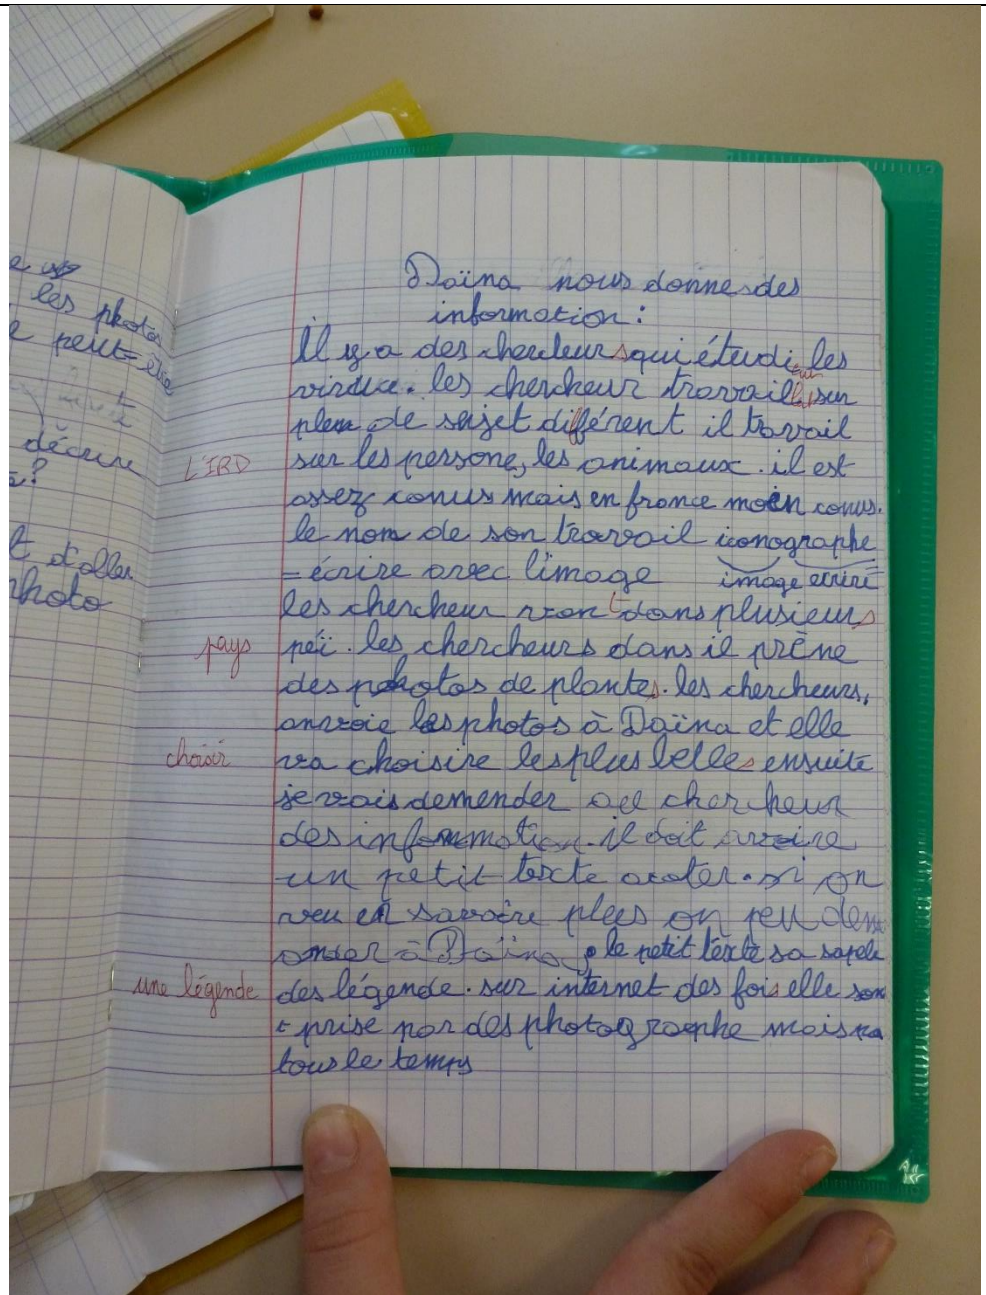 les photos
peut-etre
décrire
?
d'aller
photo
Daïna nous donne des
information :
Il y a des chercheurs qui étudient les
virdue. les chercheur travaillent sur
plein de sujet différent il travail
L'IRD sur les persone, les animaux. il est
assez conus mais en france moin conus.
le nom de son travail iconographe
= écrire avec l'image image ecrire
les chercheur vont dans plusieurs
pays péï. les chercheurs dans il prène
des photos de plantes. les chercheurs,
anvoie les photos à Daïna et elle
choisir va choisire les plus belles ensuite
je vais demender au chercheur
des information. il doit avoire
un petit texte acoter. si on
veu en savoire plus on peu dem
ander à Daïna. le petit texte sa sapele
une légende des légende. sur internet des fois elle son
t prise par des photographe mais pa
tous le temps